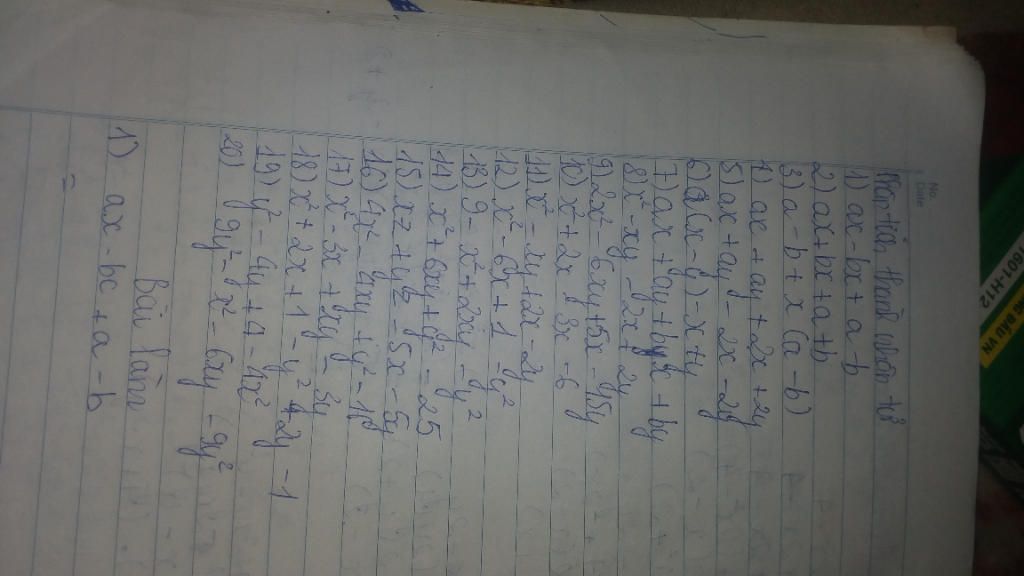 No.
Date
Phân tích thành nhân tử
1) ax - bx + a - b
2) ax + bx + a + b
3) a - b + x (a - b)
4) ax + ay + 2x + 2y
5) ax + ay - 2x - 2y
6) a (x - y) - x + y
7) ax + ay + bx + by
8) x² - xy - 2x + 2y
9) 2x² - 6xy + 5x - 15y
10) x² + 2x - 3x - 6
11) x² - xy + 2x - 2y
12) x² - 6x + 1 - y²
13) 9 - x² + 2xy - y²
14) x² + 6xy + y² - 25
15) xz + yz - 5x - 5y
16) 4x² - 4xy + y² - 16
17) x² - 3x + xy - 3y
18) x² + 2x + 1 - y² + 2y - 1
19) y² - 4y + 4 - 4x²
20) 9y² - x² - 6xy - 9y²
Bài làm
1) ax - bx + a - b
=